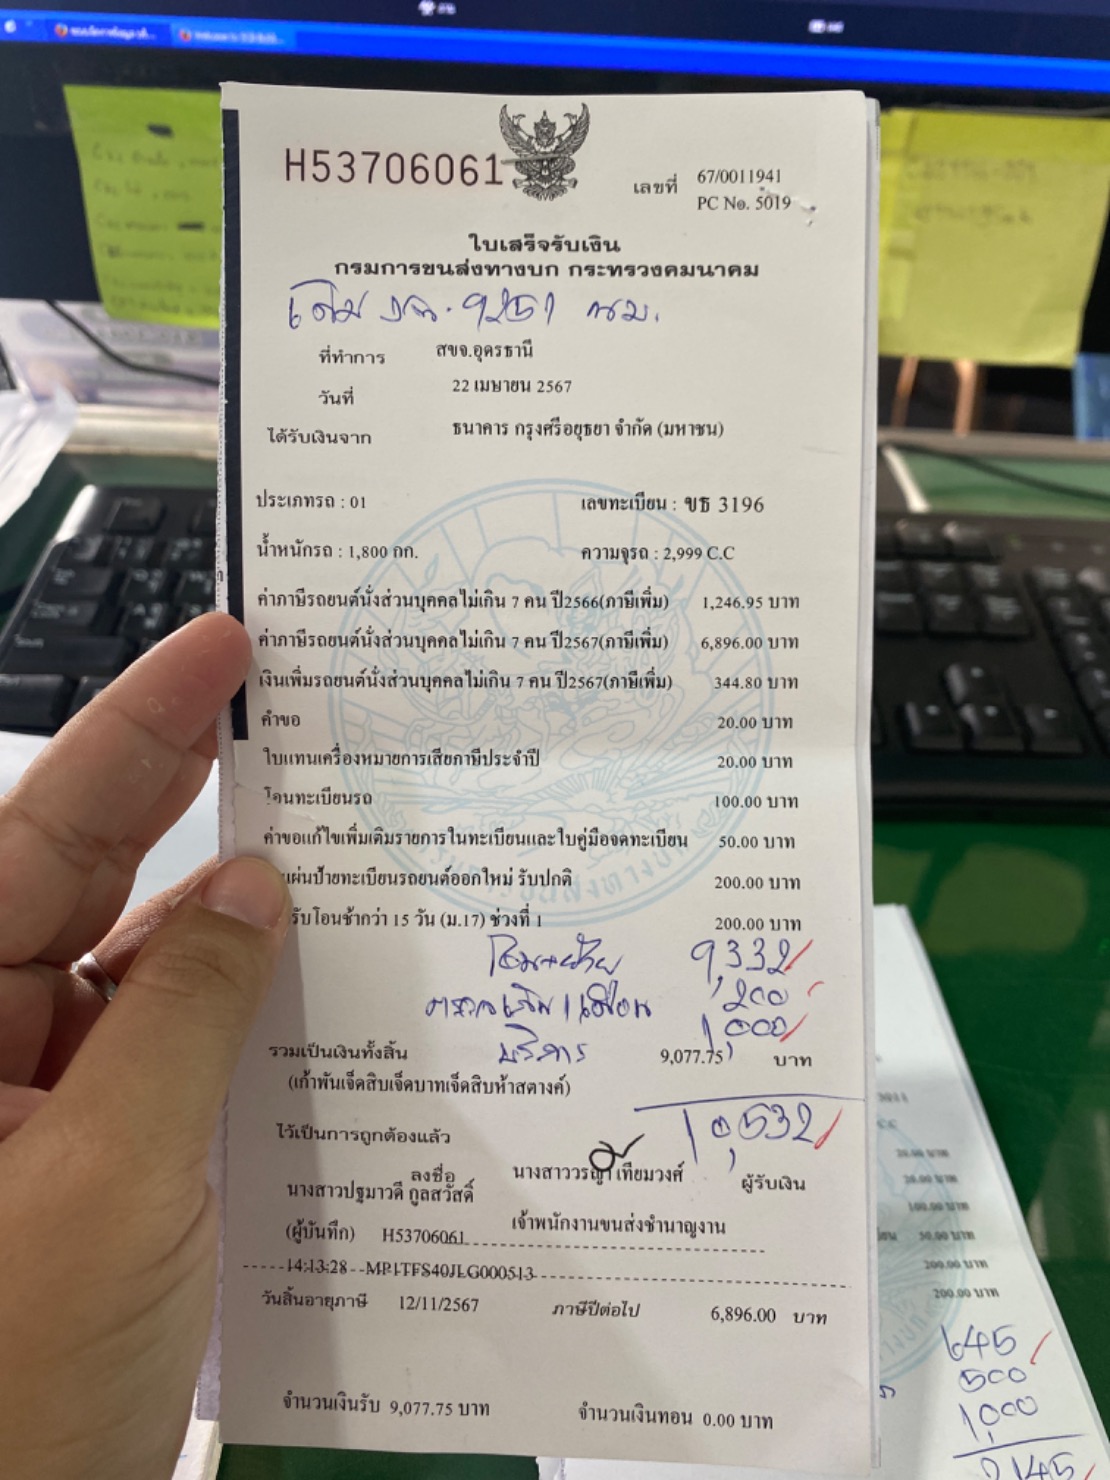 H53706061
เลขที่ 67/0011941
PC No. 5019
ใบเสร็จรับเงิน
กรมการขนส่งทางบก กระทรวงคมนาคม
เดิม 9251 นม.
ที่ทำการ สขจ.อุดรธานี
วันที่ 22 เมษายน 2567
ได้รับเงินจาก ธนาคาร กรุงศรีอยุธยา จำกัด (มหาชน)
ประเภทรถ : 01 เลขทะเบียน : ขธ 3196
น้ำหนักรถ : 1,800 กก. ความจุรถ : 2,999 C.C
ค่าภาษีรถยนต์นั่งส่วนบุคคลไม่เกิน 7 คน ปี2566(ภาษีเพิ่ม) 1,246.95 บาท
ค่าภาษีรถยนต์นั่งส่วนบุคคลไม่เกิน 7 คน ปี2567(ภาษีเพิ่ม) 6,896.00 บาท
เงินเพิ่มรถยนต์นั่งส่วนบุคคลไม่เกิน 7 คน ปี2567(ภาษีเพิ่ม) 344.80 บาท
คำขอ 20.00 บาท
ใบแทนเครื่องหมายการเสียภาษีประจำปี 20.00 บาท
โอนทะเบียนรถ 100.00 บาท
คำขอแก้ไขเพิ่มเติมรายการในทะเบียนและใบคู่มือจดทะเบียน 50.00 บาท
แผ่นป้ายทะเบียนรถยนต์ออกใหม่ รับปกติ 200.00 บาท
รับโอนช้ากว่า 15 วัน (ม.17) ช่วงที่ 1 200.00 บาท
โอน+ย้าย 9,332
200
บริการ 1,000
รวมเป็นเงินทั้งสิ้น 9,077.75 บาท
(เก้าพันเจ็ดสิบเจ็ดบาทเจ็ดสิบห้าสตางค์)
10,532
ไว้เป็นการถูกต้องแล้ว
ลงชื่อ นางสาววรญา เทียมวงศ์ ผู้รับเงิน
นางสาวปฐมาวดี กูลสวัสดิ์
เจ้าพนักงานขนส่งชำนาญงาน
(ผู้บันทึก) H53706061
14:13:28 MP1TFS40JLG000513
วันสิ้นอายุภาษี 12/11/2567 ภาษีปีต่อไป 6,896.00 บาท
จำนวนเงินรับ 9,077.75 บาท จำนวนเงินทอน 0.00 บาท
20.00 บาท
20.00 บาท
100.00 บาท
50.00 บาท
200.00 บาท
200.00 บาท
645
500
1,000
2,145